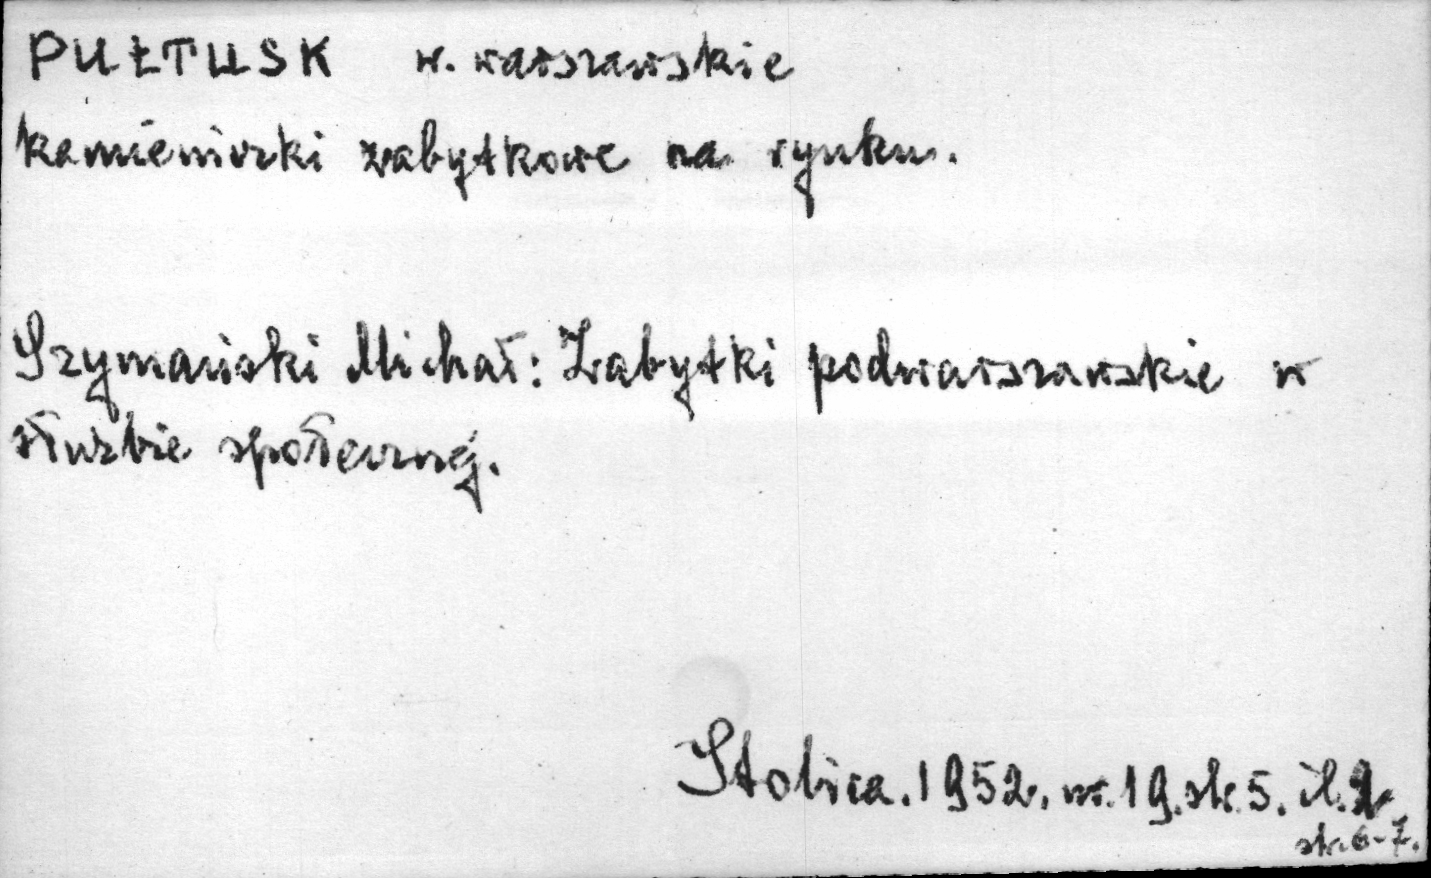 PUŁTUSK w. warszawskie
kamieniczki zabytkowe na rynku.
Szymański Michał: Zabytki podwarszawskie w
służbie społecznej.
Stolica. 1952. nr. 19. str. 5. il. 2
str. 6-7.